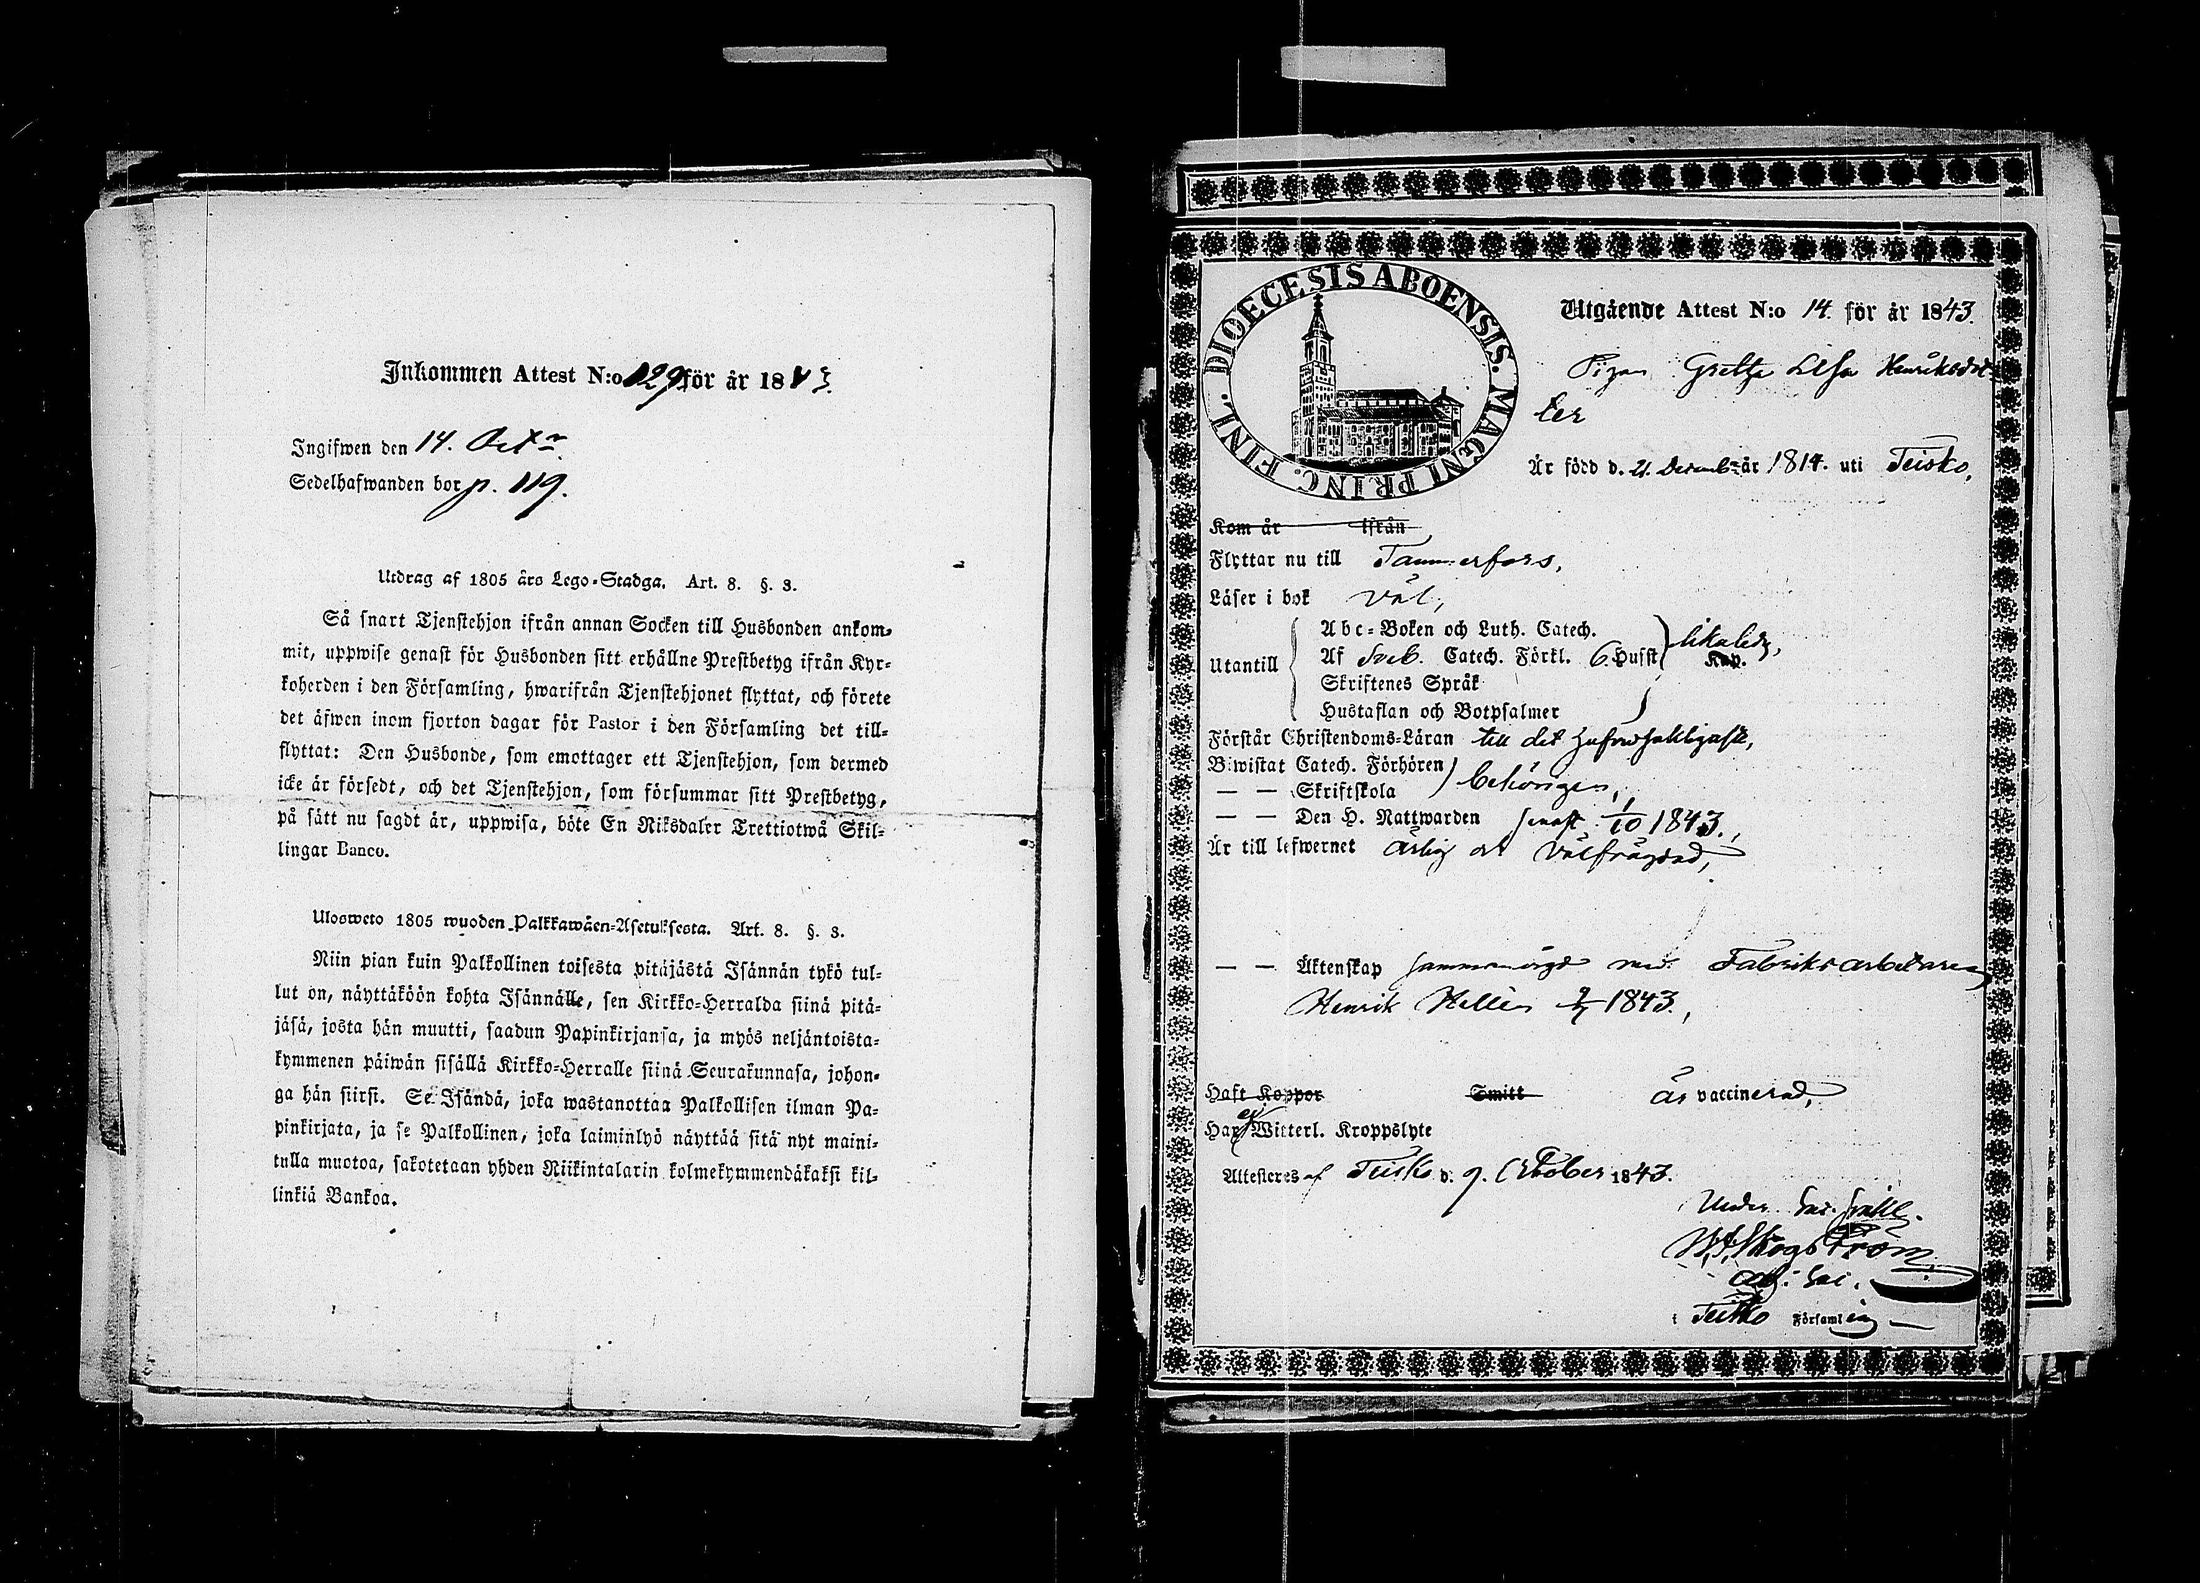 Inkommen Attest N:o 129 för år 1843.
Ingifwen den 14. Octr.
Sedelhafwanden bor p. 119.
Utdrag af 1805 års Lego-Stadga. Art. 8. §. 3.
Så snart Tjenstehjon ifrån annan Socken till Husbonden ankom-
mit, uppwise genast för Husbonden sitt erhållne Prestbetyg ifrån Kyr-
koherden i den Församling, hwarifrån Tjenstehjonet flyttat, och förete
det äfwen inom fjorton dagar för Pastor i den Församling det till-
flyttat: Den Husbonde, som emottager ett Tjenstehjon, som dermed
icke är försedt, och det Tjenstehjon, som försummar sitt Prestbetyg,
på sätt nu sagdt är, uppwisa, böte En Riksdaler Trettiotwå Skil-
lingar Banco.
Ulosweto 1805 wuoden Palkkawäen-Asetuksesta. Art. 8. §. 3.
Niin pian kuin Palkollinen toisesta pitäjästä Isännän tykö tul-
lut on, näyttäköön kohta Isännälle, sen Kirkko-Herralda siinä pitä-
jäsä, josta hän muutti, saadun Papinkirjansa, ja myös neljäntoista-
kymmenen päiwän sisällä Kirkko-Herralle siinä Seurakunnasa, johon-
ga hän siirsi. Se Isändä, joka wastanottaa Palkollisen ilman Pa-
pinkirjata, ja se Palkollinen, joka laiminlyö näyttää sitä nyt maini-
tulla muotoa, sakotetaan yhden Riikintalarin kolmekymmendäkaksi kil-
linkiä Bankoa.
DIOECESIS ABOENSIS. MAGNI PRINC. FINL.
Utgående Attest N:o 14. för år 1843.
Pigan Gretha Lisa Henriksdot-
ter
Är född d. 21. Decemb. år 1814. uti Teisko,
Kom år ifrån
Flyttar nu till Tammerfors,
Läser i bok väl,
Utantill
Abc-Boken och Luth. Catech.
Af Sveb. Catech. Förkl. 6 Husst likaledes,
Kap.
Skriftenes Språk
Hustaflan och Botpsalmer
Förstår Christendoms-Läran till det
Biwistat Catech. Förhören
— — Skriftskola behörigen,
— — Den H. Nattwarden senast 1/10 1843.,
Är till lefwernet ärlig och välfrägdad,
— — Äktenskap sammanvigd med Fabriksarbetaren
Henrik Hellén 1843.,
Haft Koppor Smitt är vaccinerad,
Har ej Witterl. Kroppslyte
Attesteres af Teisko d. 9. October 1843.
Under
Skogström
i Teisko Församling